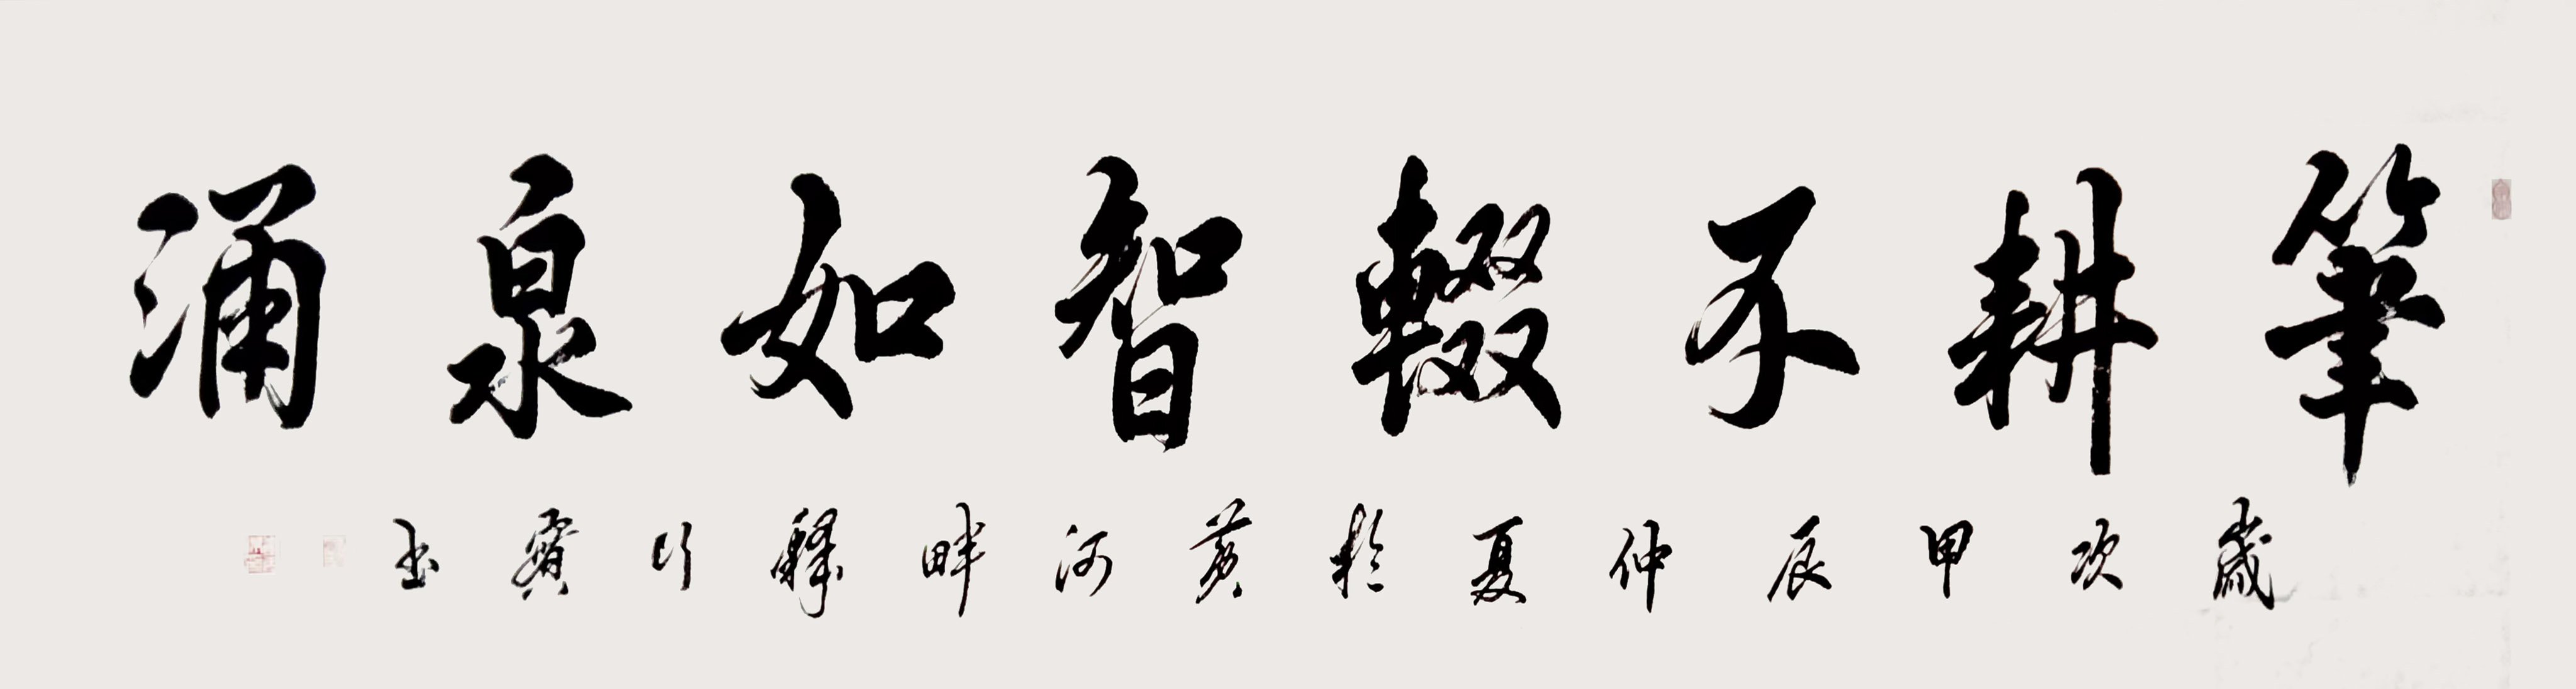 筆耕不輟智如泉涌
歲次甲辰仲夏於黃河畔釋行賓書